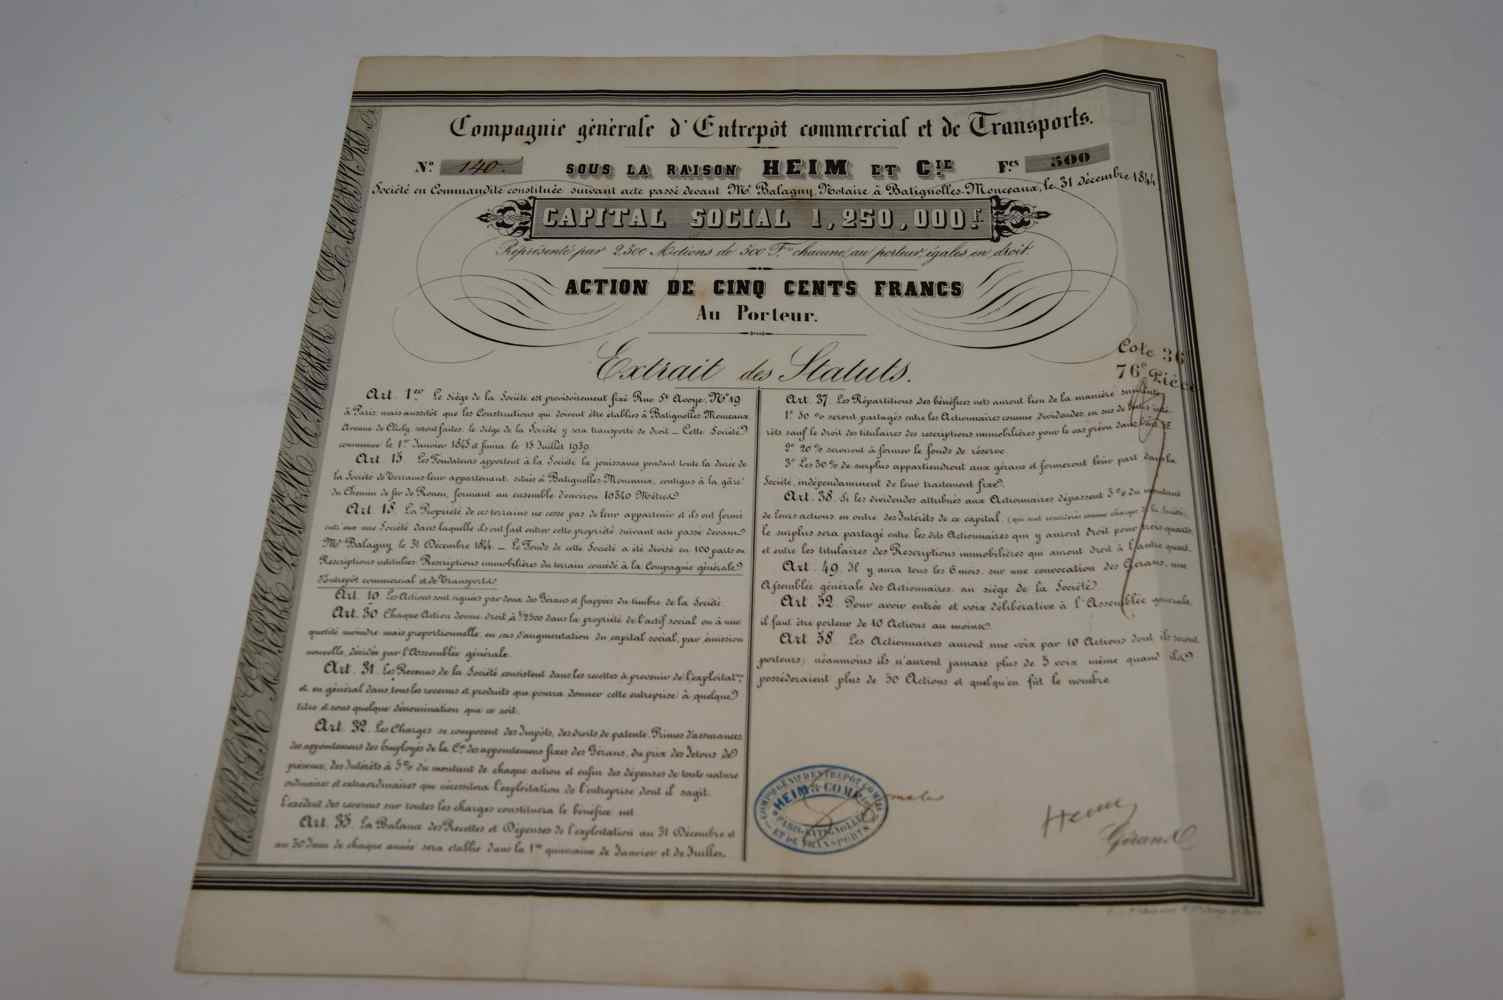 Compagnie générale d'Entrepôt commercial et de Transports.
N.º 140. SOUS LA RAISON HEIM ET C.IE F.cs 500
Société en Commandite constituée suivant acte passé devant Me Balagny, Notaire à Batignolles-Monceaux, le 31 décembre 1844
CAPITAL SOCIAL 1,250,000 F.
Représenté par 2500 Actions de 500 F. chacune, au porteur, égales en droit.
ACTION DE CINQ CENTS FRANCS
Au Porteur.
Extrait des Statuts.
Cote 36
76e Pièce
Art. 1er Le siège de la Société est provisoirement fixé Rue Ste Avoye, No 19
à Paris, mais aussitôt que les Constructions qui doivent être établies à Batignolles Monceaux
Avenue de Clichy seront faites, le siège de la Société y sera transporté de droit _ Cette Société
commence le 1er Janvier 1845 et finira le 15 Juillet 1939.
Art. 15 Les Fondateurs apportent à la Société la jouissance pendant toute la durée de
la Société de Terrains leur appartenant, situés à Batignolles-Monceaux, contigus à la gare
du Chemin de fer de Rouen, formant un ensemble d'environ Mètres
Art. 18. La Propriété de ces terrains ne cesse pas de leur appartenir et ils ont formé
entr'eux une Société dans laquelle ils ont fait entrer cette propriété suivant acte passé devant
Me Balagny le 31 Décembre 1844. _ Le Fonds de cette Société a été divisé en 100 parts ou
Rescriptions intitulées: Rescriptions immobilières du terrain concédé à la Compagnie générale
d'Entrepôt commercial et de Transports
Art. 19. Les Actions sont signées par deux des Gérans et frappées du timbre de la Société.
Art. 30 Chaque Action donne droit à 1/2500 dans la propriété de l'actif social ou à une
quotité moindre mais proportionnelle, en cas d'augmentation du capital social, par émission
nouvelle, décidée par l'Assemblée générale.
Art. 31. Les Revenus de la Société consistent dans les recettes à provenir de l'exploitat.on
et en général dans tous les revenus et produits que pourra donner cette entreprise à quelque
titre et sous quelque dénomination que ce soit.
Art. 32. Les Charges se composent des Impôts, des droits de patente, Primes d'assurances,
des appointemens des Employés de la Cie des appointemens fixes des Gérans, du prix des Jetons de
présence, des Intérêts à 5% du montant de chaque action et enfin des dépenses de toute nature
ordinaires et extraordinaires que nécessitera l'exploitation de l'entreprise dont il s'agit.
L'excédent des revenus sur toutes les charges constituera le bénéfice net.
Art. 35. La Balance des Recettes et Dépenses de l'exploitation au 31 Décembre et
au 30 Juin de chaque année sera établie dans la 1re quinzaine de Janvier et de Juillet.
Art. 37. Les Répartitions des bénéfices nets auront lieu de la manière suivante:
1º 50 % seront partagés entre les Actionnaires comme dividendes, en sus de leurs inté-
rêts sauf le droit des titulaires des rescriptions immobilières pour le cas prévu dans l'art.
2º 20 % serviront à former le fonds de réserve.
3º Les 30 % de surplus appartiendront aux gérans et formeront leur part dans la
Société, indépendamment de leur traitement fixe.
Art. 38. Si les dividendes attribués aux Actionnaires dépassent 5 % du montant
de leurs actions, en outre des Intérêts de ce capital,
le surplus sera partagé entre les dits Actionnaires qui y auront droit pour trois quarts
et entre les titulaires des Rescriptions immobilières qui auront droit à l'autre quart.
Art. 49. Il y aura tous les 6 mois, sur une convocation des Gérans, une
Assemblée générale des Actionnaires, au siège de la Société
Art. 52. Pour avoir entrée et voix délibérative à l'Assemblée générale,
il faut être porteur de 10 Actions au moins
Art. 58. Les Actionnaires auront une voix par 10 Actions dont ils seront
porteurs; néanmoins ils n'auront jamais plus de 5 voix même quand ils
posséderaient plus de 50 Actions et quelqu'en fût le nombre
COMPIE GÉNLE D'ENTREPÔT COMMAL
HEIM & COMPIE
PARIS-BATIGNOLLES
ET DE TRANSPORTS
Heim
Gérant